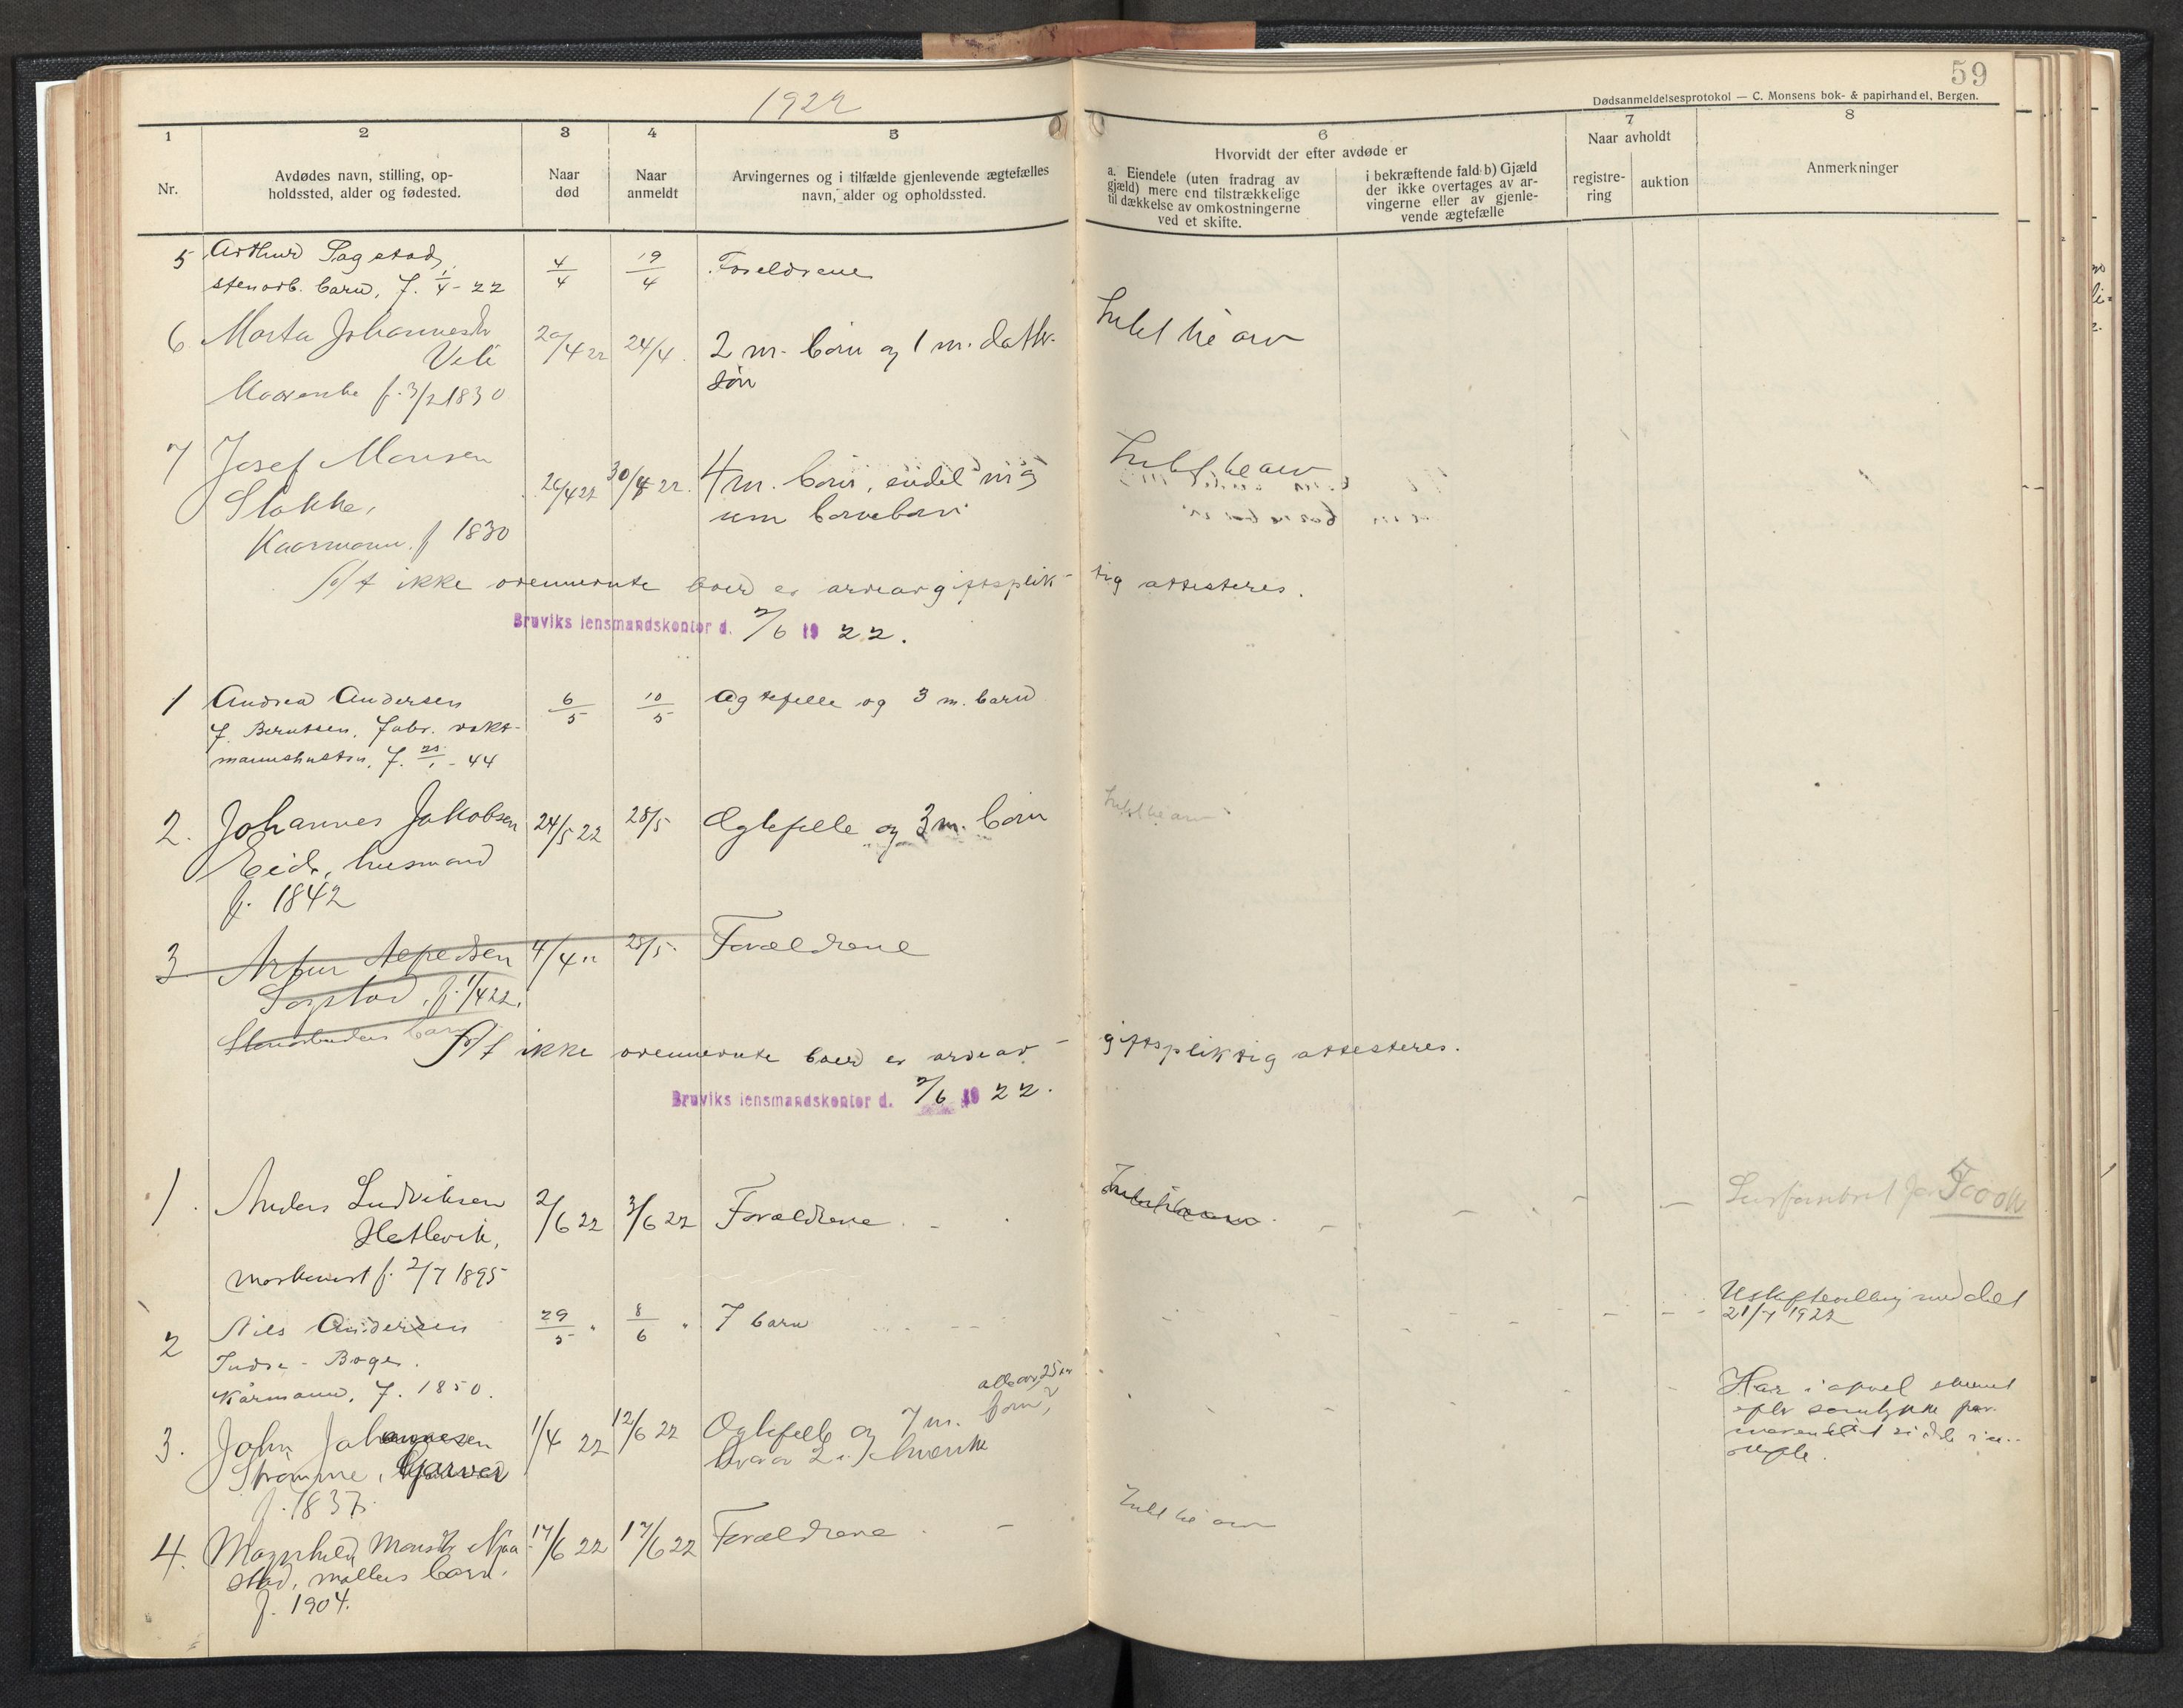 59
1922
Dødsanmeldelsesprotokol — C. Monsens bok- & papirhandel, Bergen.
1 2 3 4 5 6 7 8
Nr.
Avdødes navn, stilling, op-
holdssted, alder og fødested.
Naar
død
Naar
anmeldt
Arvingernes og i tilfælde gjenlevende ægtefælles
navn, alder og opholdssted.
Hvorvidt der efter avdøde er
a. Eiendele (uten fradrag av
gjæld) mere end tilstrækkelige
til dækkelse av omkostningerne
ved et skifte.
i bekræftende fald b) Gjæld
der ikke overtages av ar-
vingerne eller av gjenle-
vende ægtefælle
Naar avholdt
registre-
ring
auktion
Anmerkninger
5 Arthur Sagstad, 4/4 19/4 Foreldrene
stenarb. barn, f. 1/4 - 22
6 Marta Johannesdtr 20/4 22 24/4. 2 m. born og 1 m. datter- Intet til arv
søn
f. 3/2 1830
7 Josef Monsen 26/4 22 30/4 22. 4 m. born, endel m og Intet til arv
Stokke, um borneborn
Kaarmann. f 1830
At ikke ovennevnte boer er arveavgiftsplik- tig attesteres.
Bruviks lensmandskontor d. 2/6 19 22.
1 Andrea Andersen 6/5 10/5 Ægtefelle og 3 m. barn
f. Berntsen, fabr. vakt-
mannshustru, f. - 44
2. Johannes Jakobsen 24/5 22 28/5 Egtefelle og 3 m. born Intet til arv
Eide, husmand
f. 1842
3 Artur 4/4 " 28/5. Forældrene
Sagstad, f. 1/4 22.
Stenarbeiders barn
At ikke ovennevnte boer er arveav- giftspliktig attesteres.
Bruviks lensmandskontor d. 2/6 19 22.
1. Anders Ludviksen 2/6 22 3/6 22 Forældrene. Intet til arv
Hetlevik,
maskinist f. 2/7 1895
2 Nils Andersen 29/5 " 8/6 " 7 barn
Indre - Boge.
Kårmann, f. 1850.
21/7 1922
3. John Johannesen 1/4 22 12/6 22 Egtefelle og 7 m. born, alle over 25 år
Strømme, Garver hvorav 2 i Amerika
f. 1837.
Har i
4. Magnhild Monsdtr Njaa- 14/6 22 17/6 22 Forældrene. Intet til arv
stad, møllers barn.
f. 1904.